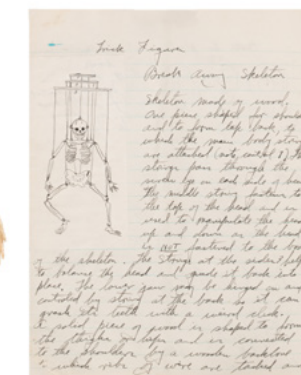 Trick Figures
Break Away Skeleton
Skeleton made of wood.
One piece shaped for shoulders
and to form top back, to
which the main body strings
are attached (note control
strings pass through the
screw eye on each side of head
The middle string fastens to
the top of the head and is
used to manipulate the head
up and down as the head
is NOT fastened to the body
of the skeleton. The strings at the sides help
to balance the head and guide it back into
place. The lower jaw may be hinged on and
controlled by string at the back so it can
gnash its teeth with a weird click.
A solid piece of wood is shaped to form
the and hips and is connected
to the shoulders by a wooden backbone
to which ribs of wire are fastened and